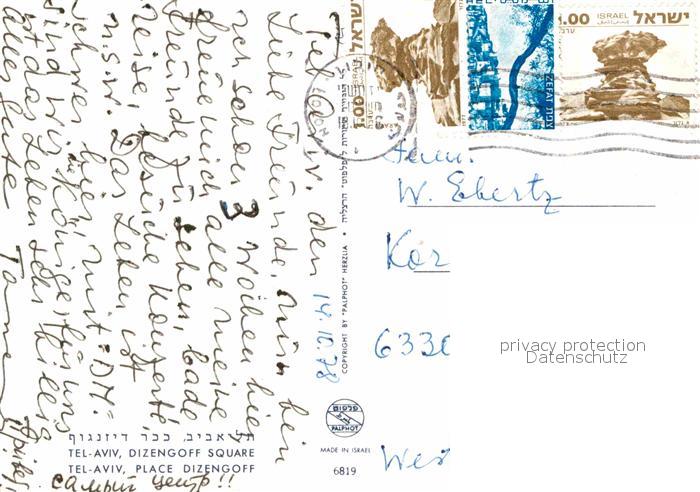 Tel Aviv. den
14.10.78
Liebe Freunde. Nun bin
ich schon 3 Wochen hier
freue mich alle meine
Freunde zu sehen, bade
Reise, besuche Konzerte,
u.s.w. Das Leben ist
schwer hier mit DM.
sind wir die Könige, für uns
ist das Leben sehr
alles gute
самый центр!!
תל-אביב, ככר דיזנגוף
TEL-AVIV, DIZENGOFF SQUARE
TEL-AVIV, PLACE DIZENGOFF
COPYRIGHT BY "PALPHOT" HERZLIA •
פלפוט
PALPHOT
MADE IN ISRAEL
6819
1.00
ZEFAT צפת
1.00 ISRAEL ישראל
W. Ebertz
Kör
6330
privacy protection
Datenschutz